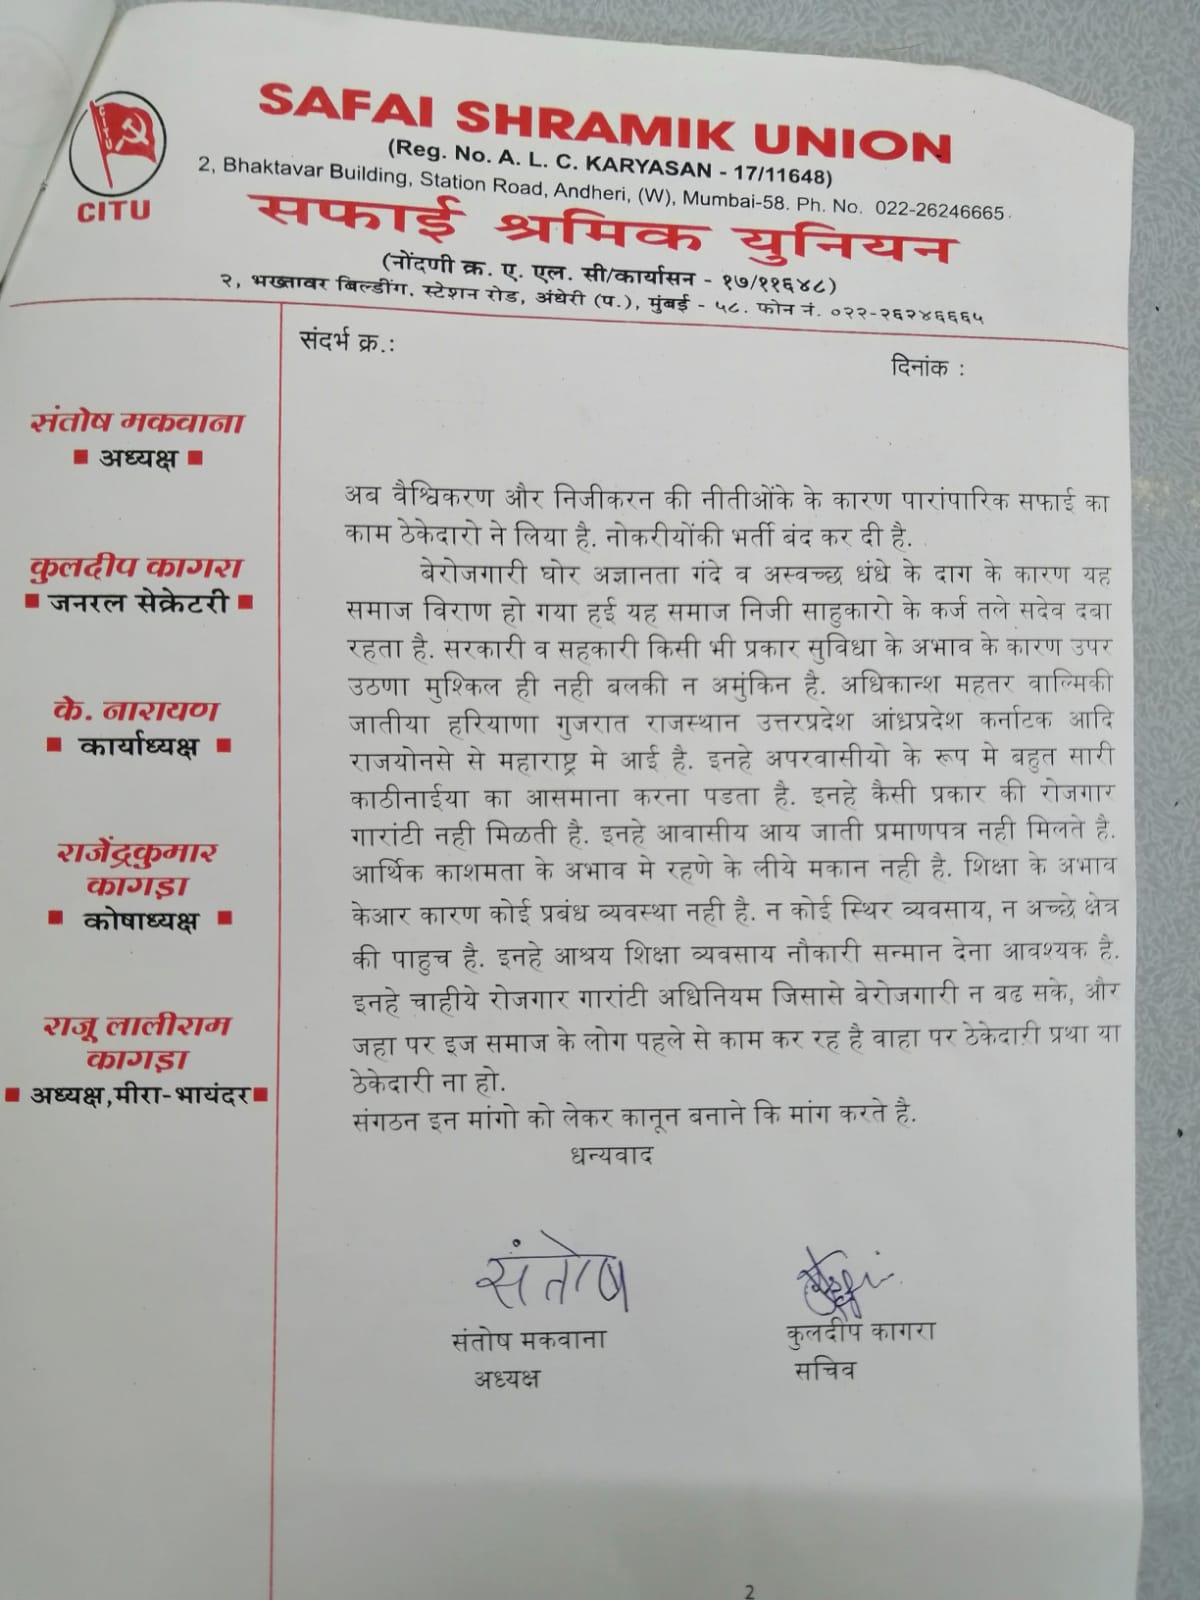 SAFAI SHRAMIK UNION
(Reg. No. A. L. C. KARYASAN - 17/11648)
2, Bhaktavar Building, Station Road, Andheri, (W), Mumbai-58. Ph. No. 022-26246665.
CITU
CITU
सफाई श्रमिक युनियन
(नोंदणी क्र. ए. एल. सी/कार्यासन - १७/११६४८)
२, भख्तावर बिल्डींग. स्टेशन रोड, अंधेरी (प.), मुंबई - ५८. फोन नं. ०२२-२६२४६६६५
संदर्भ क्र.:
दिनांक :
संतोष मकवाना
अध्यक्ष
कुलदीप कागरा
जनरल सेक्रेटरी
के. नारायण
कार्याध्यक्ष
राजेंद्रकुमार
कागड़ा
कोषाध्यक्ष
राजू लालीराम
कागड़ा
अध्यक्ष,मीरा-भायंदर
अब वैश्विकरण और निजीकरन की नीतीओंके के कारण पारांपारिक सफाई का
काम ठेकेदारो ने लिया है. नोकरीयोंकी भर्ती बंद कर दी है.
बेरोजगारी घोर अज्ञानता गंदे व अस्वच्छ धंधे के दाग के कारण यह
समाज विराण हो गया हई यह समाज निजी साहुकारो के कर्ज तले सदेव दबा
रहता है. सरकारी व सहकारी किसी भी प्रकार सुविधा के अभाव के कारण उपर
उठणा मुश्किल ही नही बलकी न अमुंकिन है. अधिकान्श महतर वाल्मिकी
जातीया हरियाणा गुजरात राजस्थान उत्तरप्रदेश आंध्रप्रदेश कर्नाटक आदि
राजयोनसे से महाराष्ट्र मे आई है. इनहे अपरवासीयो के रूप मे बहुत सारी
काठीनाईया का आसमाना करना पडता है. इनहे कैसी प्रकार की रोजगार
गारांटी नही मिळती है. इनहे आवासीय आय जाती प्रमाणपत्र नही मिलते है.
आर्थिक काशमता के अभाव मे रहणे के लीये मकान नही है. शिक्षा के अभाव
केआर कारण कोई प्रबंध व्यवस्था नही है. न कोई स्थिर व्यवसाय, न अच्छे क्षेत्र
की पाहुच है. इनहे आश्रय शिक्षा व्यवसाय नौकारी सन्मान देना आवश्यक है.
इनहे चाहीये रोजगार गारांटी अधिनियम जिसासे बेरोजगारी न बढ सके, और
जहा पर इज समाज के लोग पहले से काम कर रह है वाहा पर ठेकेदारी प्रथा या
ठेकेदारी ना हो.
संगठन इन मांगो को लेकर कानून बनाने कि मांग करते है.
धन्यवाद
संतोष
संतोष मकवाना
अध्यक्ष
कुलदीप कागरा
सचिव
2